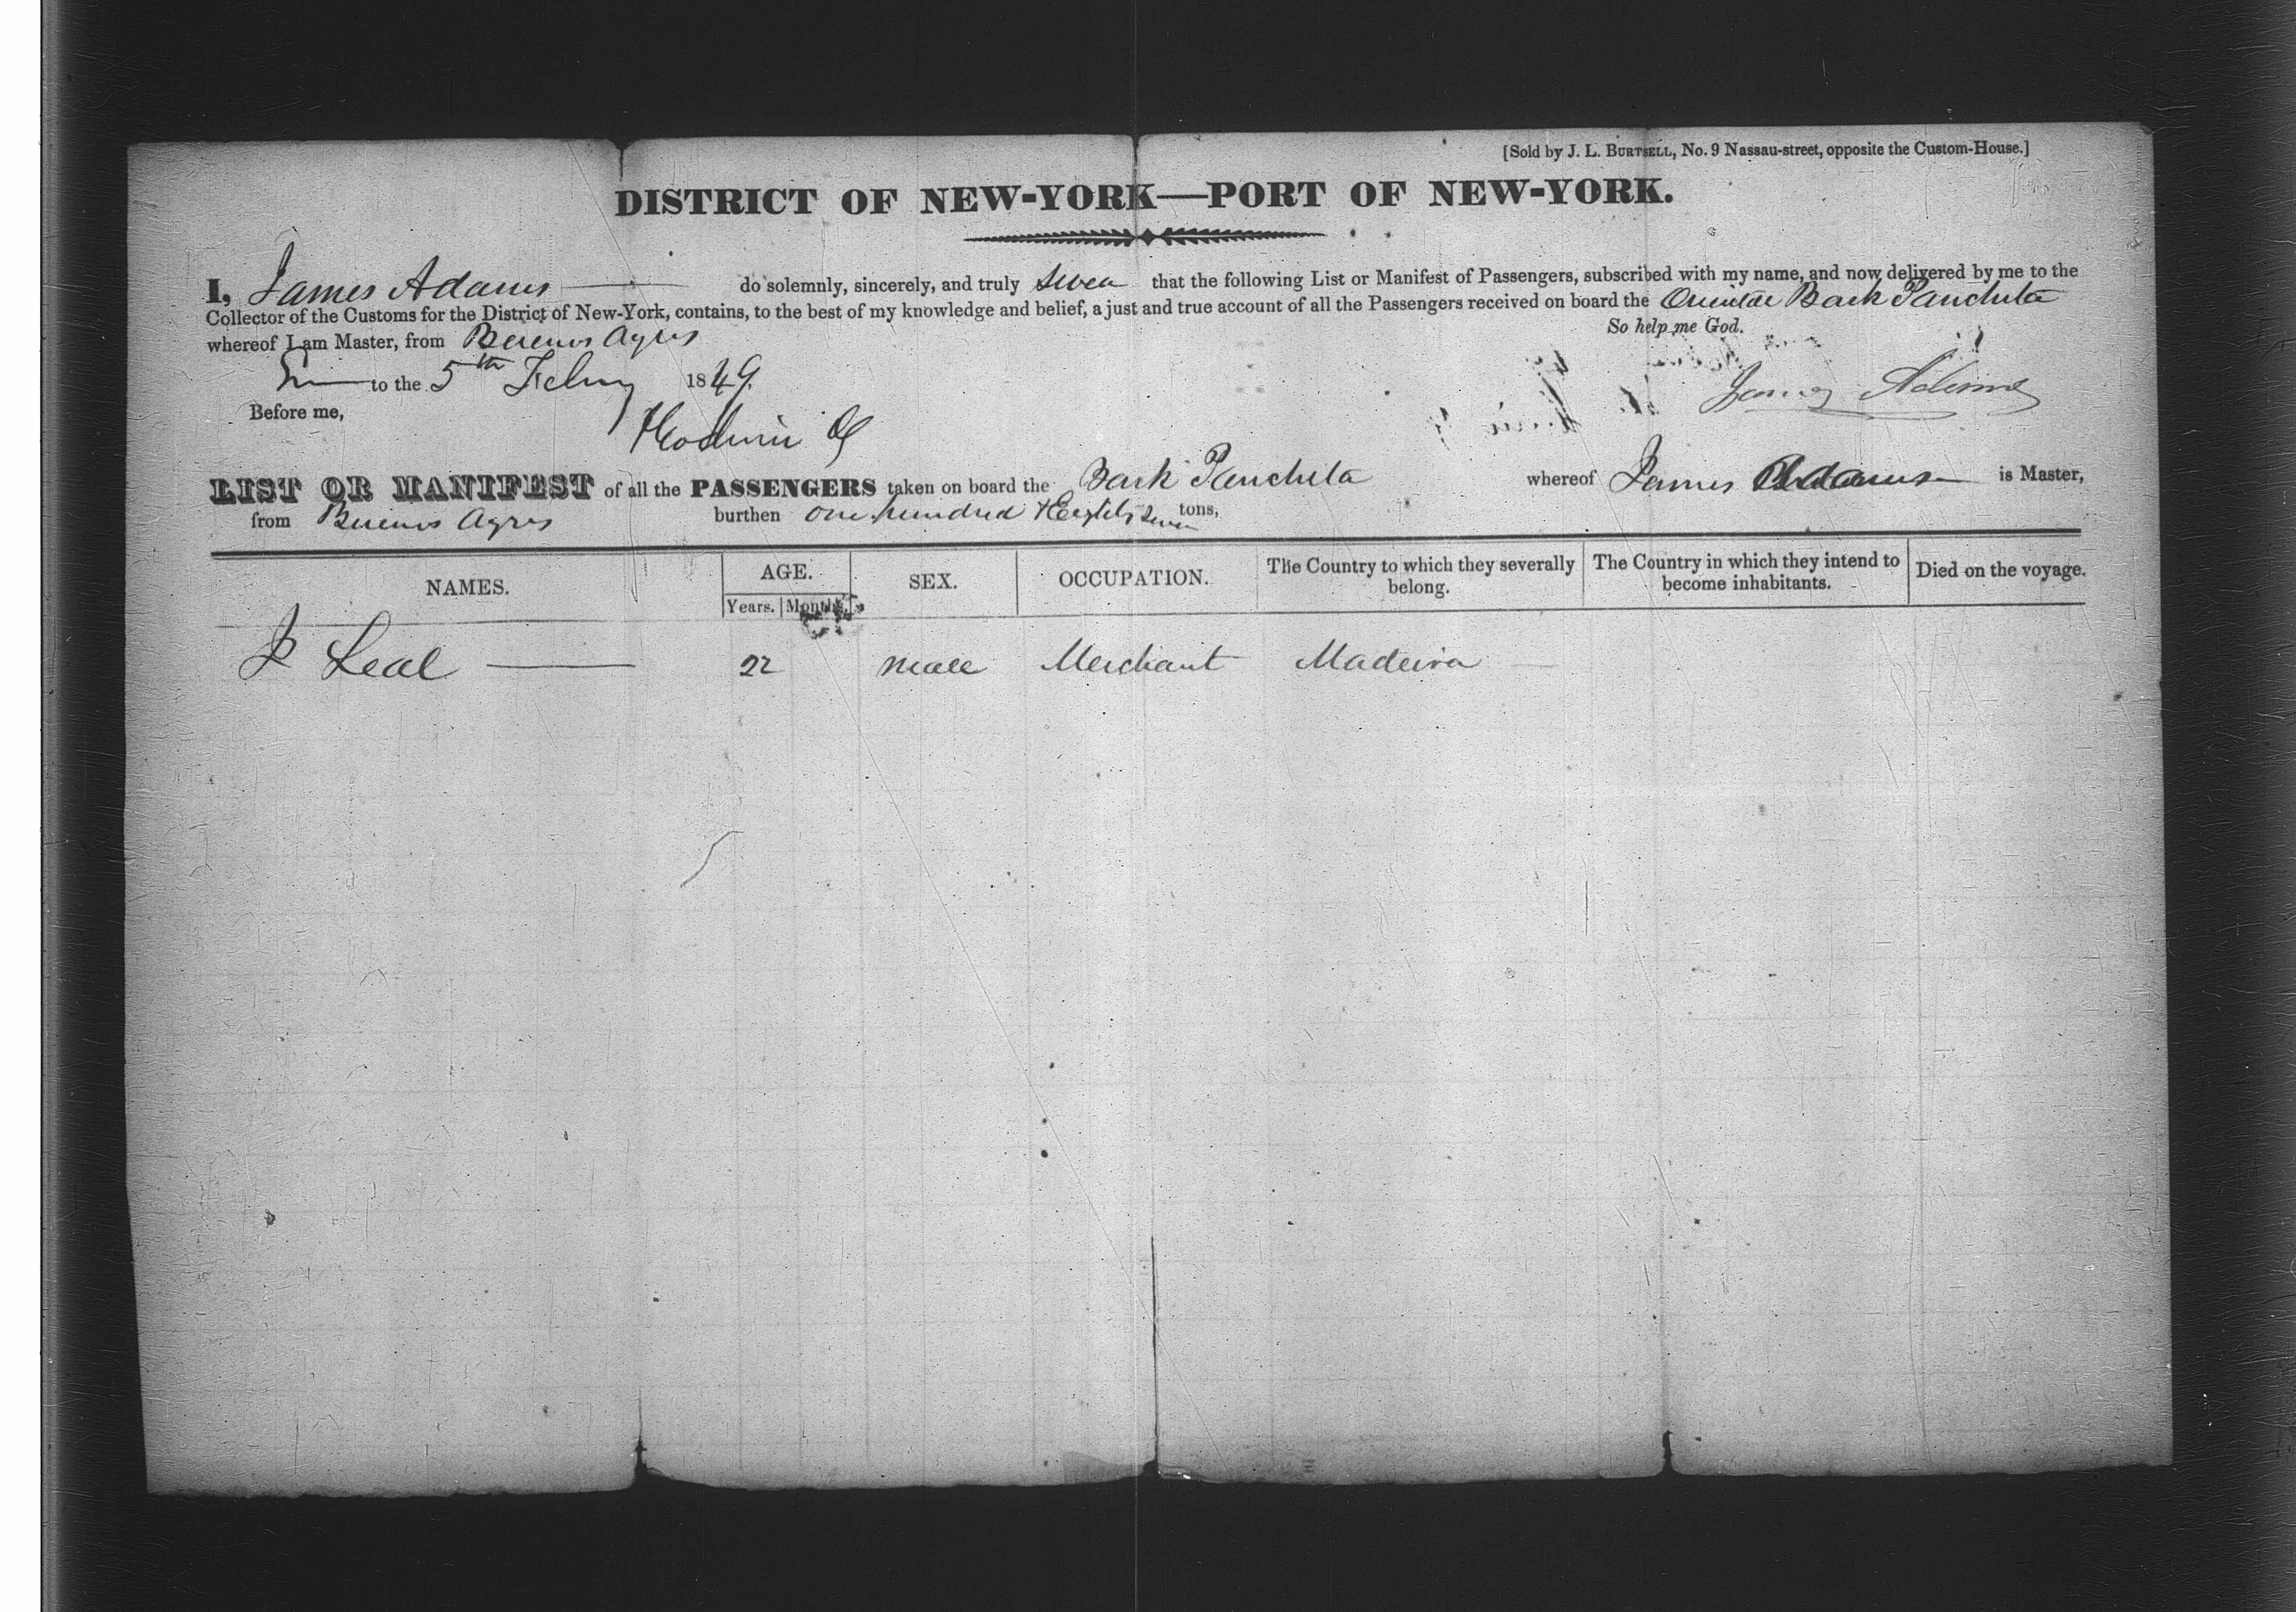 [Sold by J. L. BURTSELL, No. 9 Nassau-street, opposite the Custom-House.]
DISTRICT OF NEW-YORK—PORT OF NEW-YORK.
I, James Adams do solemnly, sincerely, and truly swear that the following List or Manifest of Passengers, subscribed with my name, and now delivered by me to the
Collector of the Customs for the District of New-York, contains, to the best of my knowledge and belief, a just and true account of all the Passengers received on board the Oriental Bark Panchita
whereof I am Master, from Buenos Ayres So help me God.
to the 5th Feby 1849. James Adams
Before me,
LIST OR MANIFEST of all the PASSENGERS taken on board the Bark Panchita whereof James Adams is Master,
from Buenos Ayres burthen One hundred & Eighty Seven tons,
NAMES. AGE. SEX. OCCUPATION. The Country to which they severally belong. The Country in which they intend to become inhabitants. Died on the voyage.
Years. Months.
J Leal 22 male Merchant Madeira